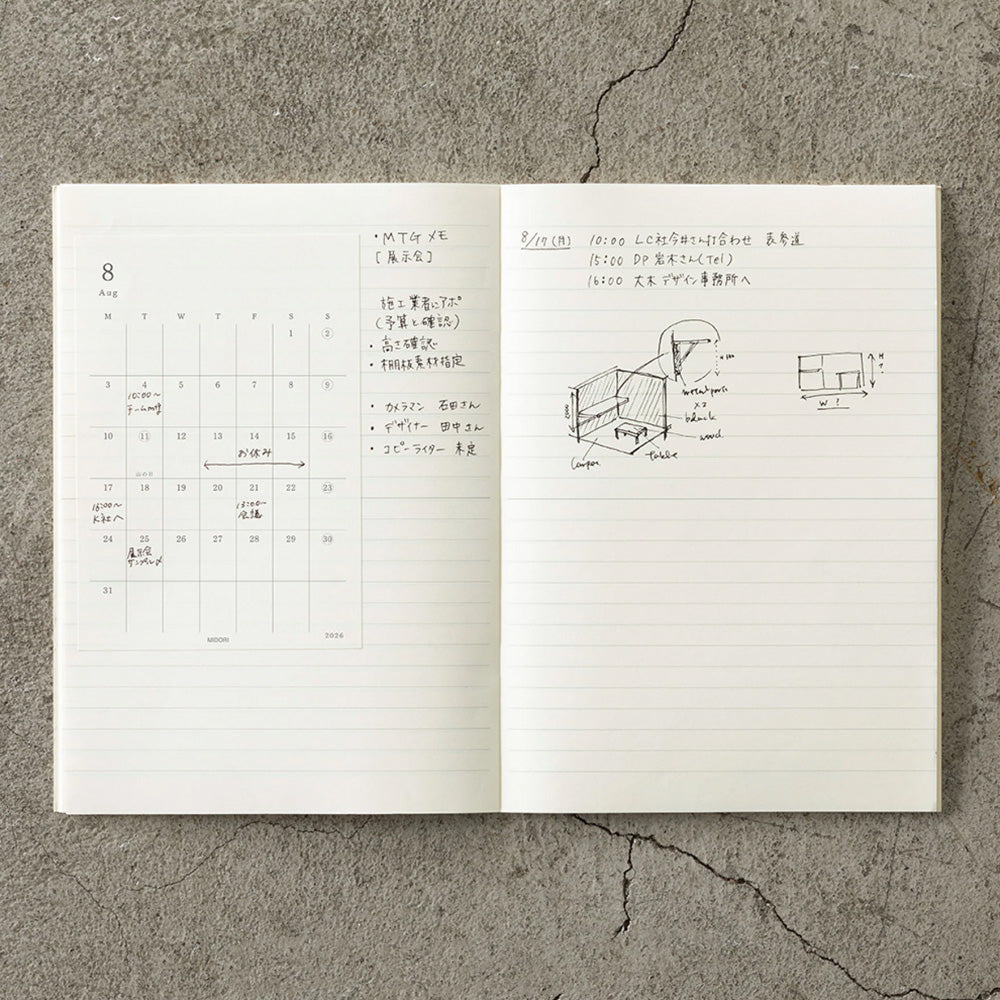 8
Aug
M T W T F S S
1 2
3 4 5 6 7 8 9
10:00〜
チームmtg
10 11 12 13 14 15 16
お休み
山の日
17 18 19 20 21 22 23
16:00〜
K社へ
13:00〜
会議
24 25 26 27 28 29 30
展示会
サンプル〆
31
MIDORI
2026
・MTGメモ
[展示会]
施工業者にアポ
(予算と確認)
・高さ確認
・棚板素材指定
・カメラマン 石田さん
・デザイナー 田中さん
・コピーライター 未定
8/17(月) 10:00 LC社今井さん打合わせ 表参道
15:00 DP岩木さん(Tel)
16:00 大木デザイン事務所へ
metal parts
×2
black
wood
table
W ?
H
?